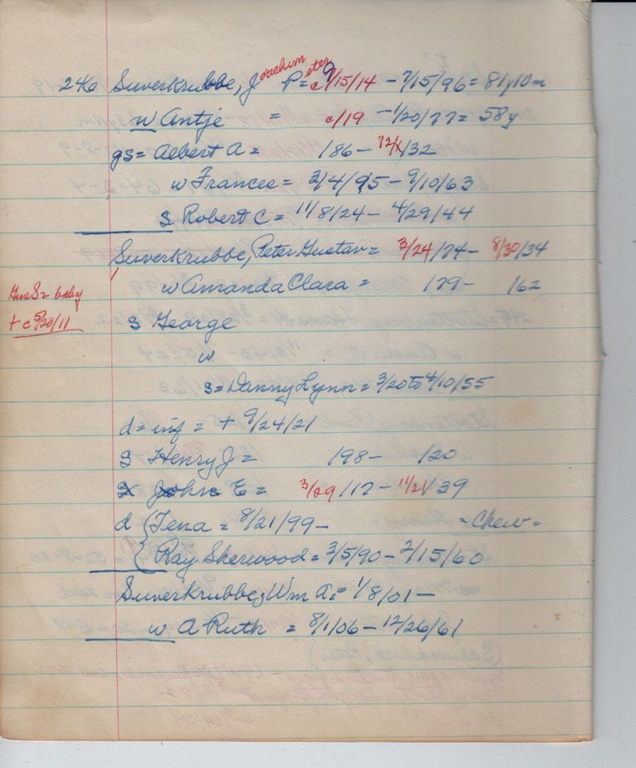 246 Suverkrubbe, Joachim Peter = c 9/15/14 - 7/15/96 = 81y10m
w Antje = c/19 - 1/20/77 = 58y
gs = Albert A = 186 - 12/x/32
w Frances = 2/4/95 - 9/10/63
s Robert C = 11/8/24 - 4/29/44
Suverkrubbe, Peter Gustav = 3/24/74 - 8/30/34
w Amanda Clara = 179 - 162
GusS = baby
+ c 5/20/11
s George
w
s = Danny Lynn = 3/20 to 4/10/55
d = inf = + 9/24/21
s Henry J = 198 - 120
s John E = 3/29/17 - 11/21/39
d { Tena = 8/21/99 - = Chew =
{ Ray Sherwood = 3/5/90 - 2/15/60
Suverkrubbe, Wm A = 1/8/01 -
w A Ruth = 8/1/06 - 12/26/61